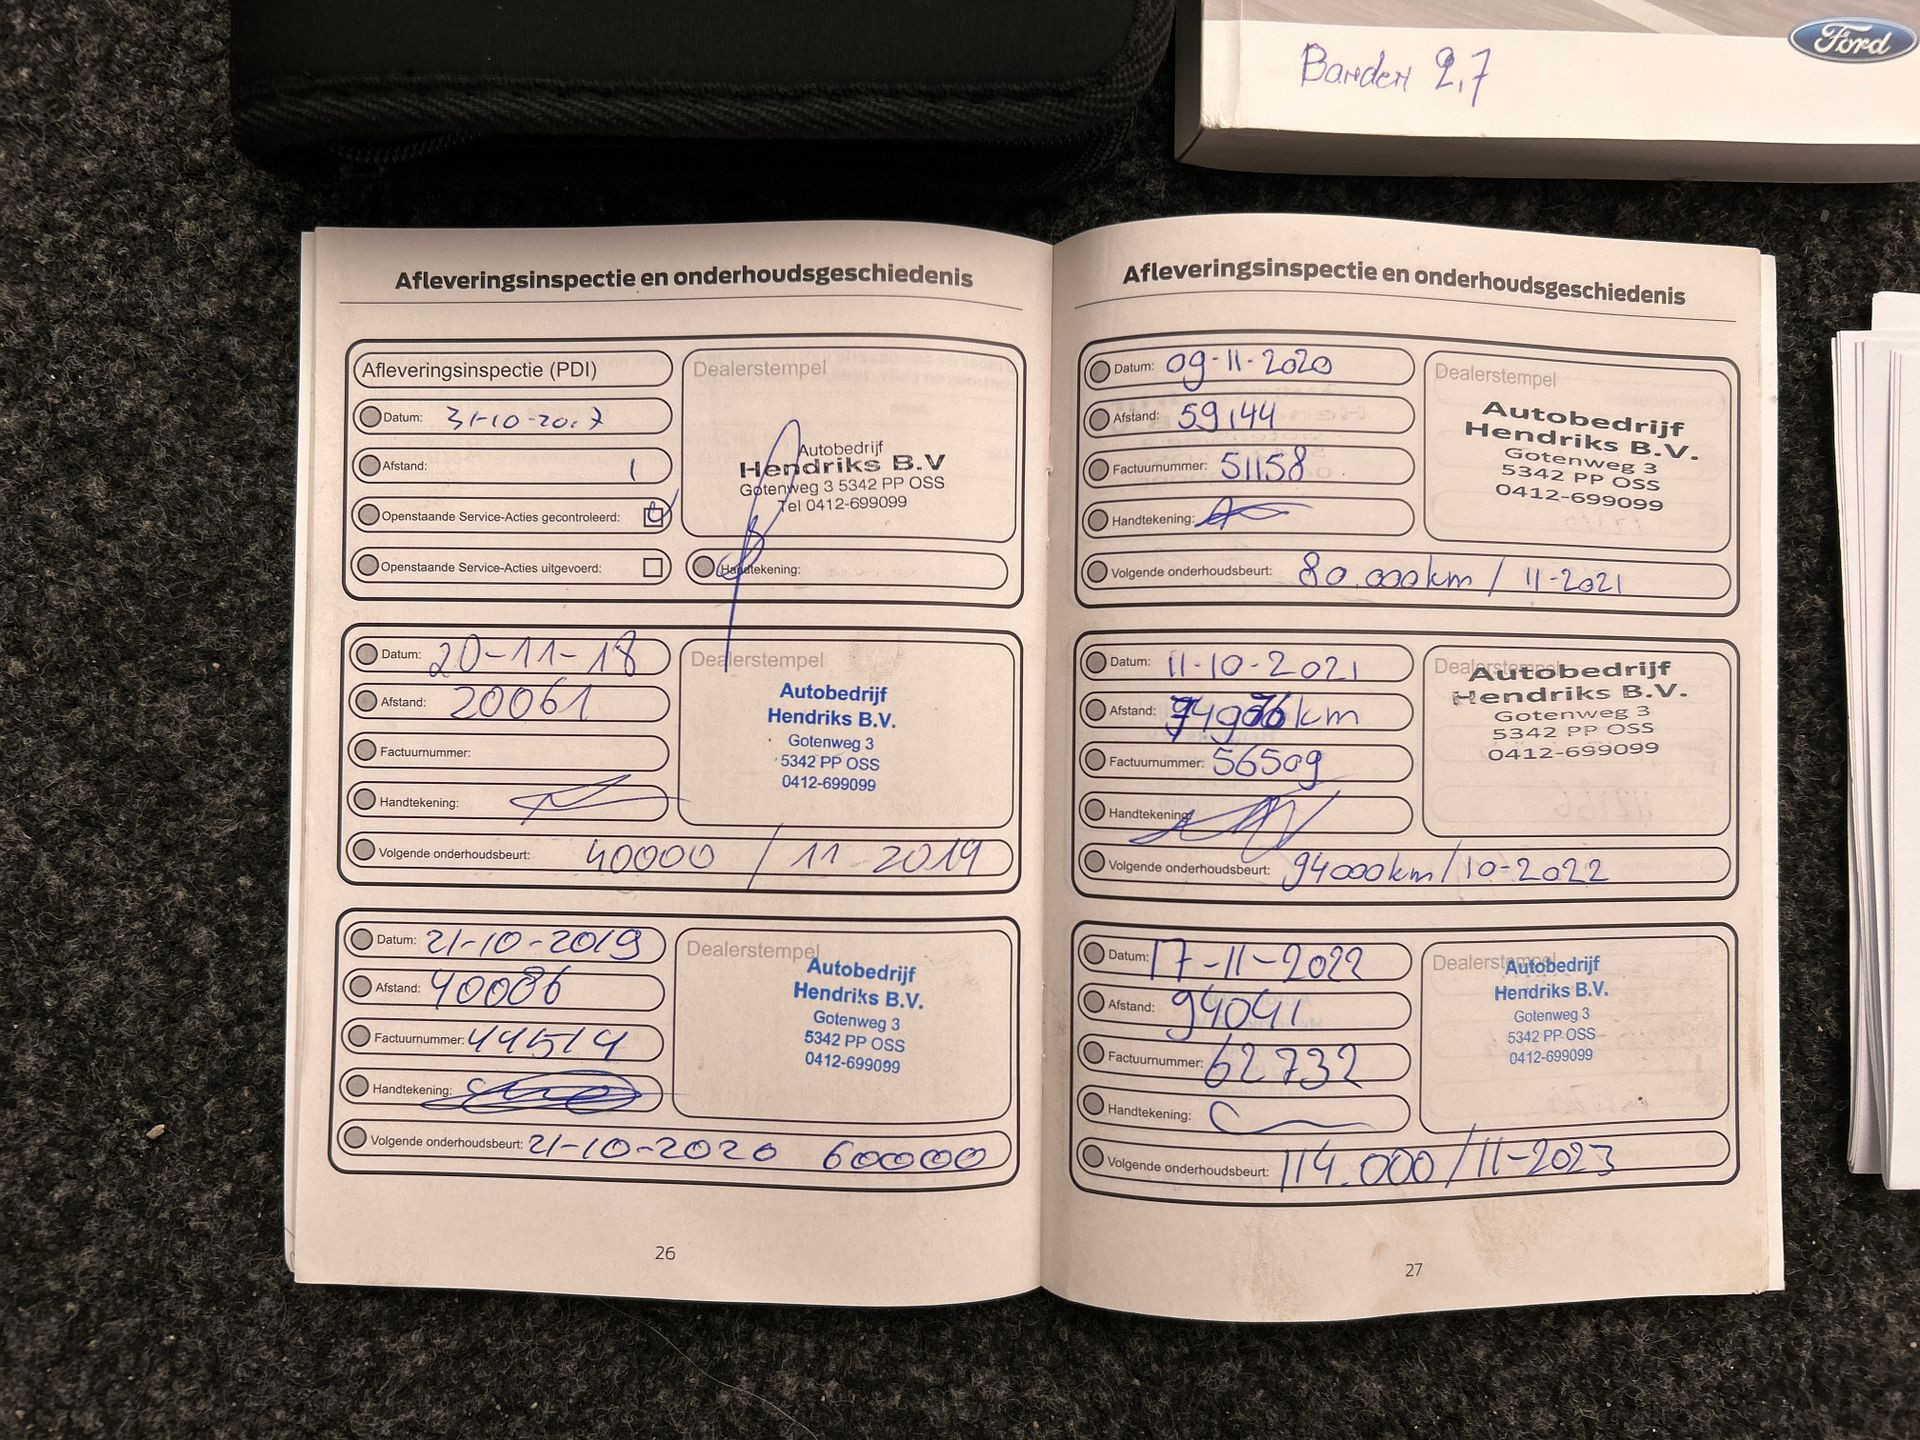 Banden 2,7
Ford
Afleveringsinspectie en onderhoudsgeschiedenis
Afleveringsinspectie (PDI)
Datum: 31-10-2017
Afstand: 1
Openstaande Service-Acties gecontroleerd:
Openstaande Service-Acties uitgevoerd:
Dealerstempel
Autobedrijf
Hendriks B.V
Gotenweg 3 5342 PP OSS
Tel 0412-699099
Handtekening:
Datum: 20-11-18
Afstand: 20061
Factuurnummer:
Handtekening:
Dealerstempel
Autobedrijf
Hendriks B.V.
Gotenweg 3
5342 PP OSS
0412-699099
Volgende onderhoudsbeurt: 40000 / 11 2019
Datum: 21-10-2019
Afstand: 40086
Factuurnummer: 44514
Handtekening:
Dealerstempel
Autobedrijf
Hendriks B.V.
Gotenweg 3
5342 PP OSS
0412-699099
Volgende onderhoudsbeurt: 21-10-2020 60000
26
Afleveringsinspectie en onderhoudsgeschiedenis
Datum: 09-11-2020
Afstand: 59144
Factuurnummer: 51158
Handtekening:
Dealerstempel
Autobedrijf
Hendriks B.V.
Gotenweg 3
5342 PP OSS
0412-699099
Volgende onderhoudsbeurt: 80.000km / 11-2021
Datum: 11-10-2021
Afstand:
Factuurnummer: 56509
Handtekening:
Dealerstempel
Autobedrijf
Hendriks B.V.
Gotenweg 3
5342 PP OSS
0412-699099
Volgende onderhoudsbeurt: 94000km/10-2022
Datum: 17-11-2022
Afstand: 94041
Factuurnummer: 62732
Handtekening:
Dealerstempel
Autobedrijf
Hendriks B.V.
Gotenweg 3
5342 PP OSS
0412-699099
Volgende onderhoudsbeurt: 114.000 / 11-2023
27